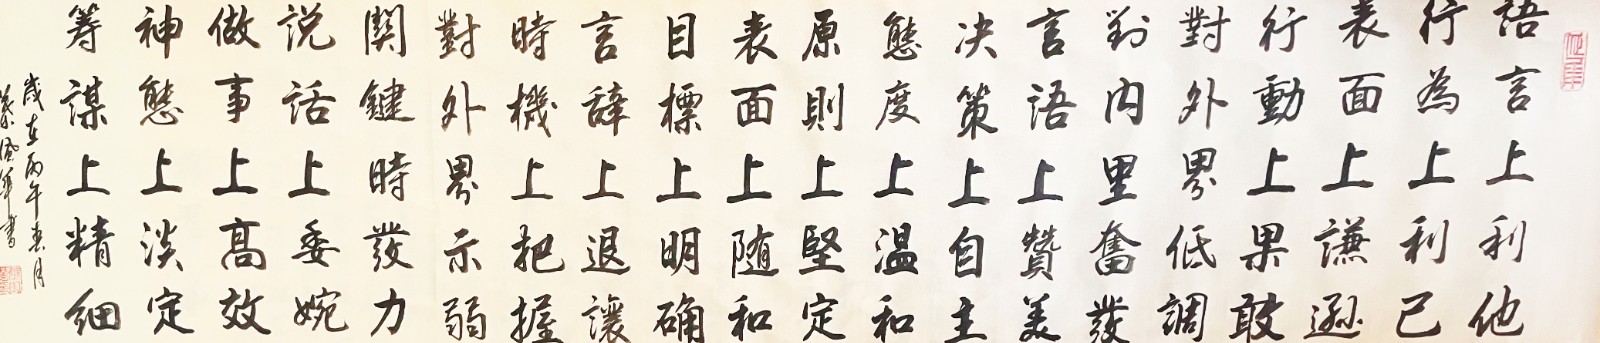 語言上利他
行為上利己
表面上謙遜
行動上果敢
對外界低調
對内里奮發
言語上贊美
决策上自主
態度上温和
原則上堅定
表面上随和
目標上明确
言辭上退讓
時機上把握
對外界示弱
関鍵時發力
説話上委婉
做事上高效
神態上淡定
籌謀上精細
歲在丙午